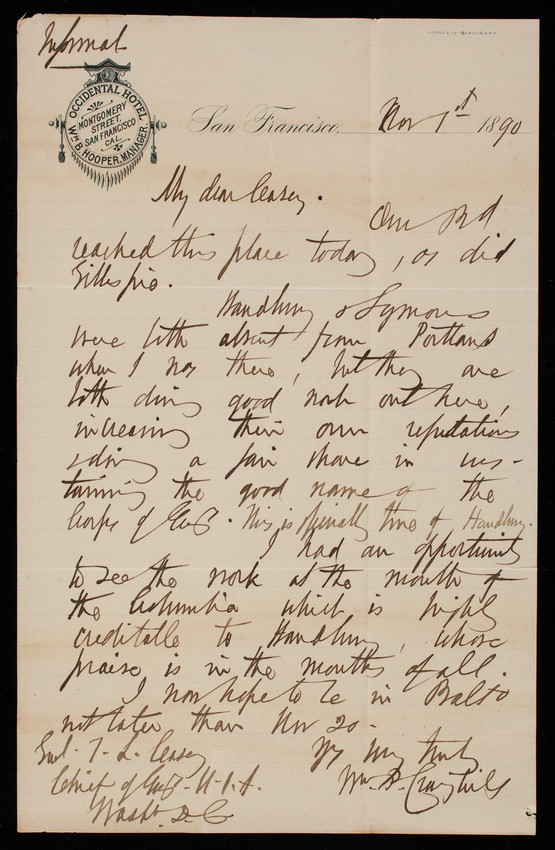 Informal
OCCIDENTAL HOTEL
MONTGOMERY
STREET,
SAN FRANCISCO
CAL.
Wm B. HOOPER, MANAGER.
San Francisco, Nov 1st 1890
My dear Casey.
Our Bd
reached this place today, as did
Gillespie.
Handbury & Symons
were both absent from Portland
when I was there, but they are
both doing good work out here,
increasing their own reputations
& doing a fair share in sus-
taining the good name of the
Corps of Eng. This is specially true of Handbury.
I had an opportunity
to see the work at the mouth of
the Columbia which is highly
creditable to Handbury, whose
praise is in the mouths of all.
I now hope to be in Balto
not later than Nov 20 -
Yrs very truly
Wm. P. Craighill
Genl. T. L. Casey
Chief of Eng. U.S.A.
Washn. D.C.